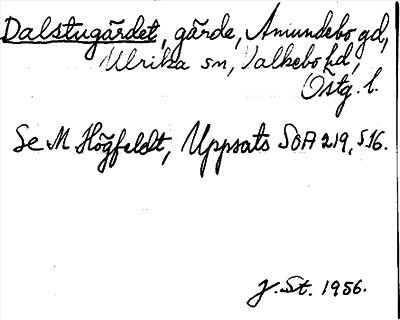 Dalstugärdet, gärde, Amundebo gd,
Ulrika sn, Valkebo hd,
Östg. l.
Se M Högfeldt, Uppsats SOA 219, s 16.
J. St. 1956.